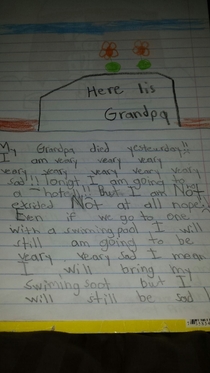 Here lis
Grandpa
My Grandpa died yesterday!!
I am veary veary veary
veary veary veary veary veary
sad!!! Tonigt I am going to
a hotel!! But I am NOT
exided NOT at all nope
Een if we go to one
with a swiming pool I will
still am going to be
veary veary sad I mean
I will bring my
swimming soot but I
will still be sad